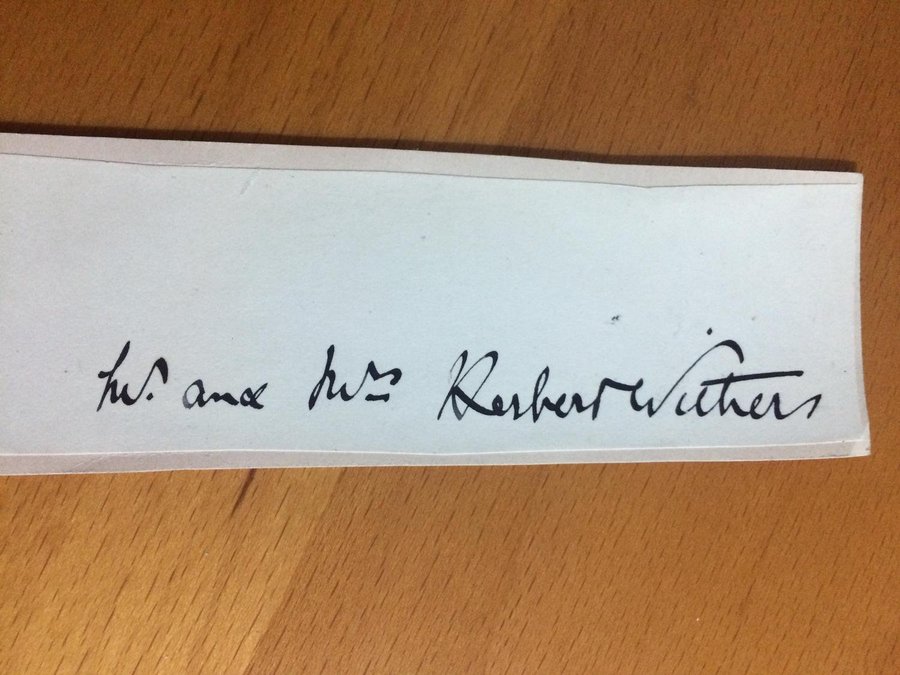 Mr. and Mrs Herbert Withers